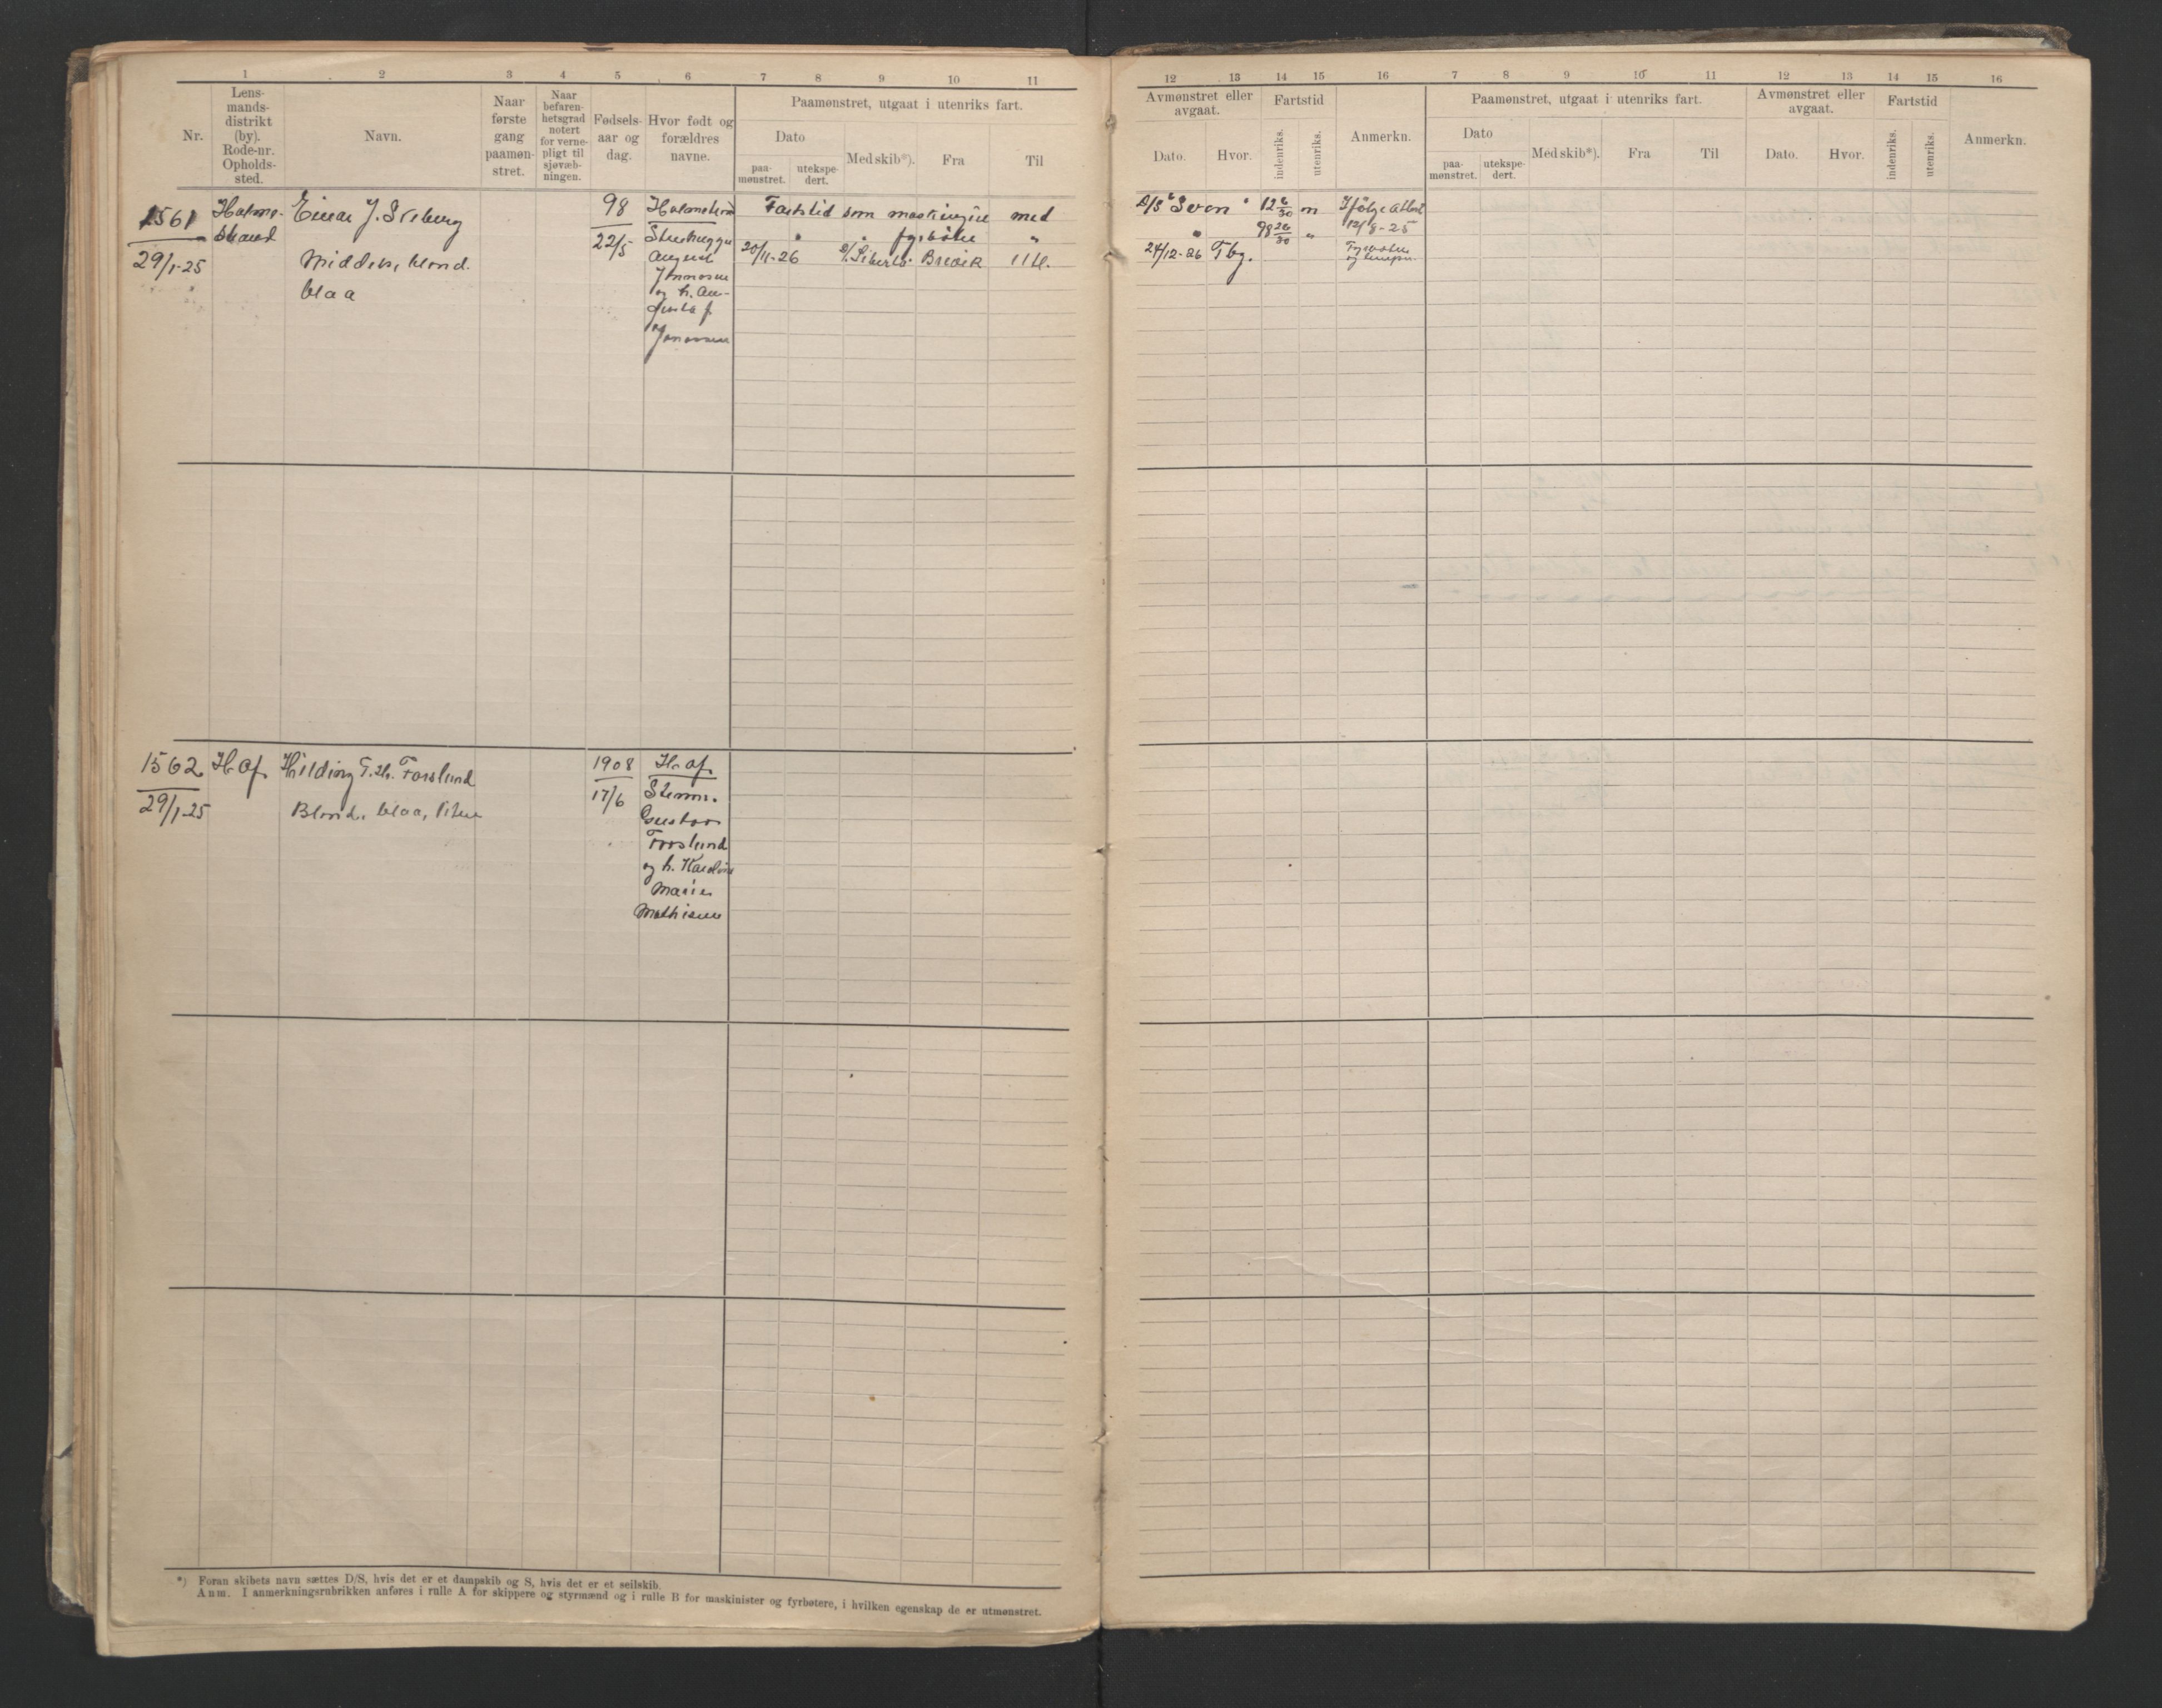 1 2 3 4 5 6 7 8 9 10 11
Nr.
Lens-
mands-
distrikt
(by).
Rode-nr.
Opholds-
sted.
Navn.
Naar
første
gang
paamøn-
stret.
Naar
befaren-
hetsgrad
notert
for verne-
pligt til
sjøvæb-
ningen.
Fødsels-
aar og
dag.
Hvor født og
forældres
navne.
Paamønstret, utgaat i utenriks fart.
Dato
paa-
mønstret.
utekspe-
dert.
Med skib*).
Fra
Til
1561
29/1-25
Holme-
strand
Einar J.
Middels, blond.
blaa
98
22/5
Holmestrand
August
og h. Au-
gusta f.
Fartstid som maskingut med
" " fyrbøter "
20/11-26 Brevik Utl.
1562
29/1-25
H. af. Hilding T. Th. Forslund
Blond, blaa, liten
1908
17/6
H. af.
Stenm.
Gustav
Forslund
og h. Karoline
Marie
Mathisen
*) Foran skibets navn sættes D/S, hvis det er et dampskib og S, hvis det er et seilskib.
Anm. I anmerkningsrubrikken anføres i rulle A for skippere og styrmænd og i rulle B for maskinister og fyrbøtere, i hvilken egenskap de er utmønstret.
12 13 14 15 16 7 8 9 10 11 12 13 14 15 16
Avmønstret eller
avgaat.
Dato.
Hvor.
Fartstid
indenriks.
utenriks.
Anmerkn.
Paamønstret, utgaat i utenriks fart.
Dato
paa-
mønstret.
utekspe-
dert.
Med skib*).
Fra
Til
Avmønstret eller
avgaat.
Dato.
Hvor.
Fartstid
indenriks.
utenriks.
Anmerkn.
D/S "Svan" 12 6/30 m Ifølge attest
" 98 26/30 " 12/8-25
24/12-26 Tbg. Fyrbøter
og